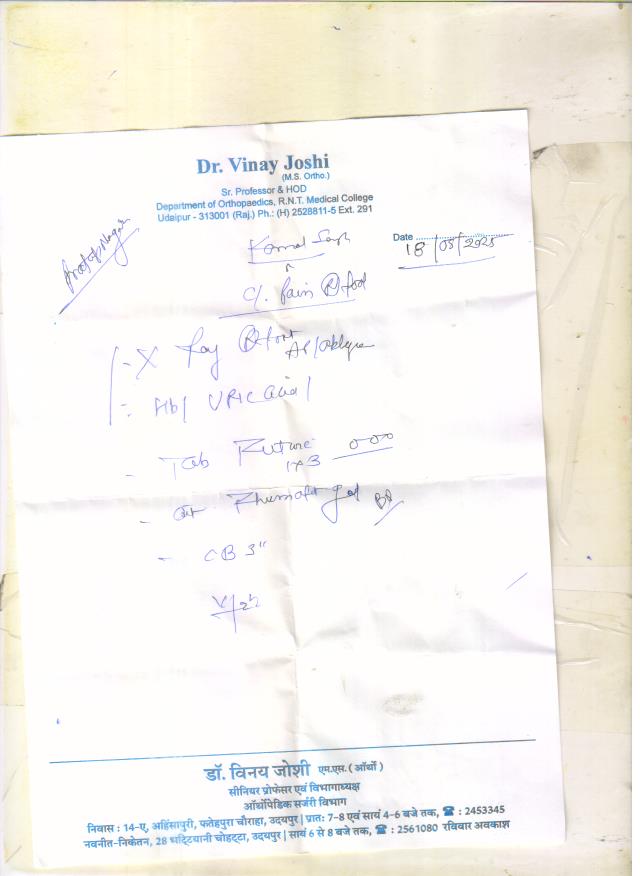 Dr. Vinay Joshi
(M.S. Ortho.)
Sr. Professor & HOD
Department of Orthopaedics, R.N.T. Medical College
Udaipur - 313001 (Raj.) Ph.: (H) 2528811-5 Ext. 291
Date 18/05/2025
c/o Pain (R) foot
- X Ray (R) foot AP/oblique
- Hb/ Uric Acid
- Tab
1 x 3
- gel
- CB 3"
डॉ. विनय जोशी एम.एस. (ऑर्थो)
सीनियर प्रोफेसर एवं विभागाध्यक्ष
ऑर्थोपेडिक सर्जरी विभाग
निवास : 14-ए, अहिंसापुरी, फतेहपुरा चौराहा, उदयपुर | प्रातः 7-8 एवं सायं 4-6 बजे तक, ☎ : 2453345
नवनीत-निकेतन, 28 भट्टियानी चोहट्टा, उदयपुर | सायं 6 से 8 बजे तक, ☎ : 2561080 रविवार अवकाश